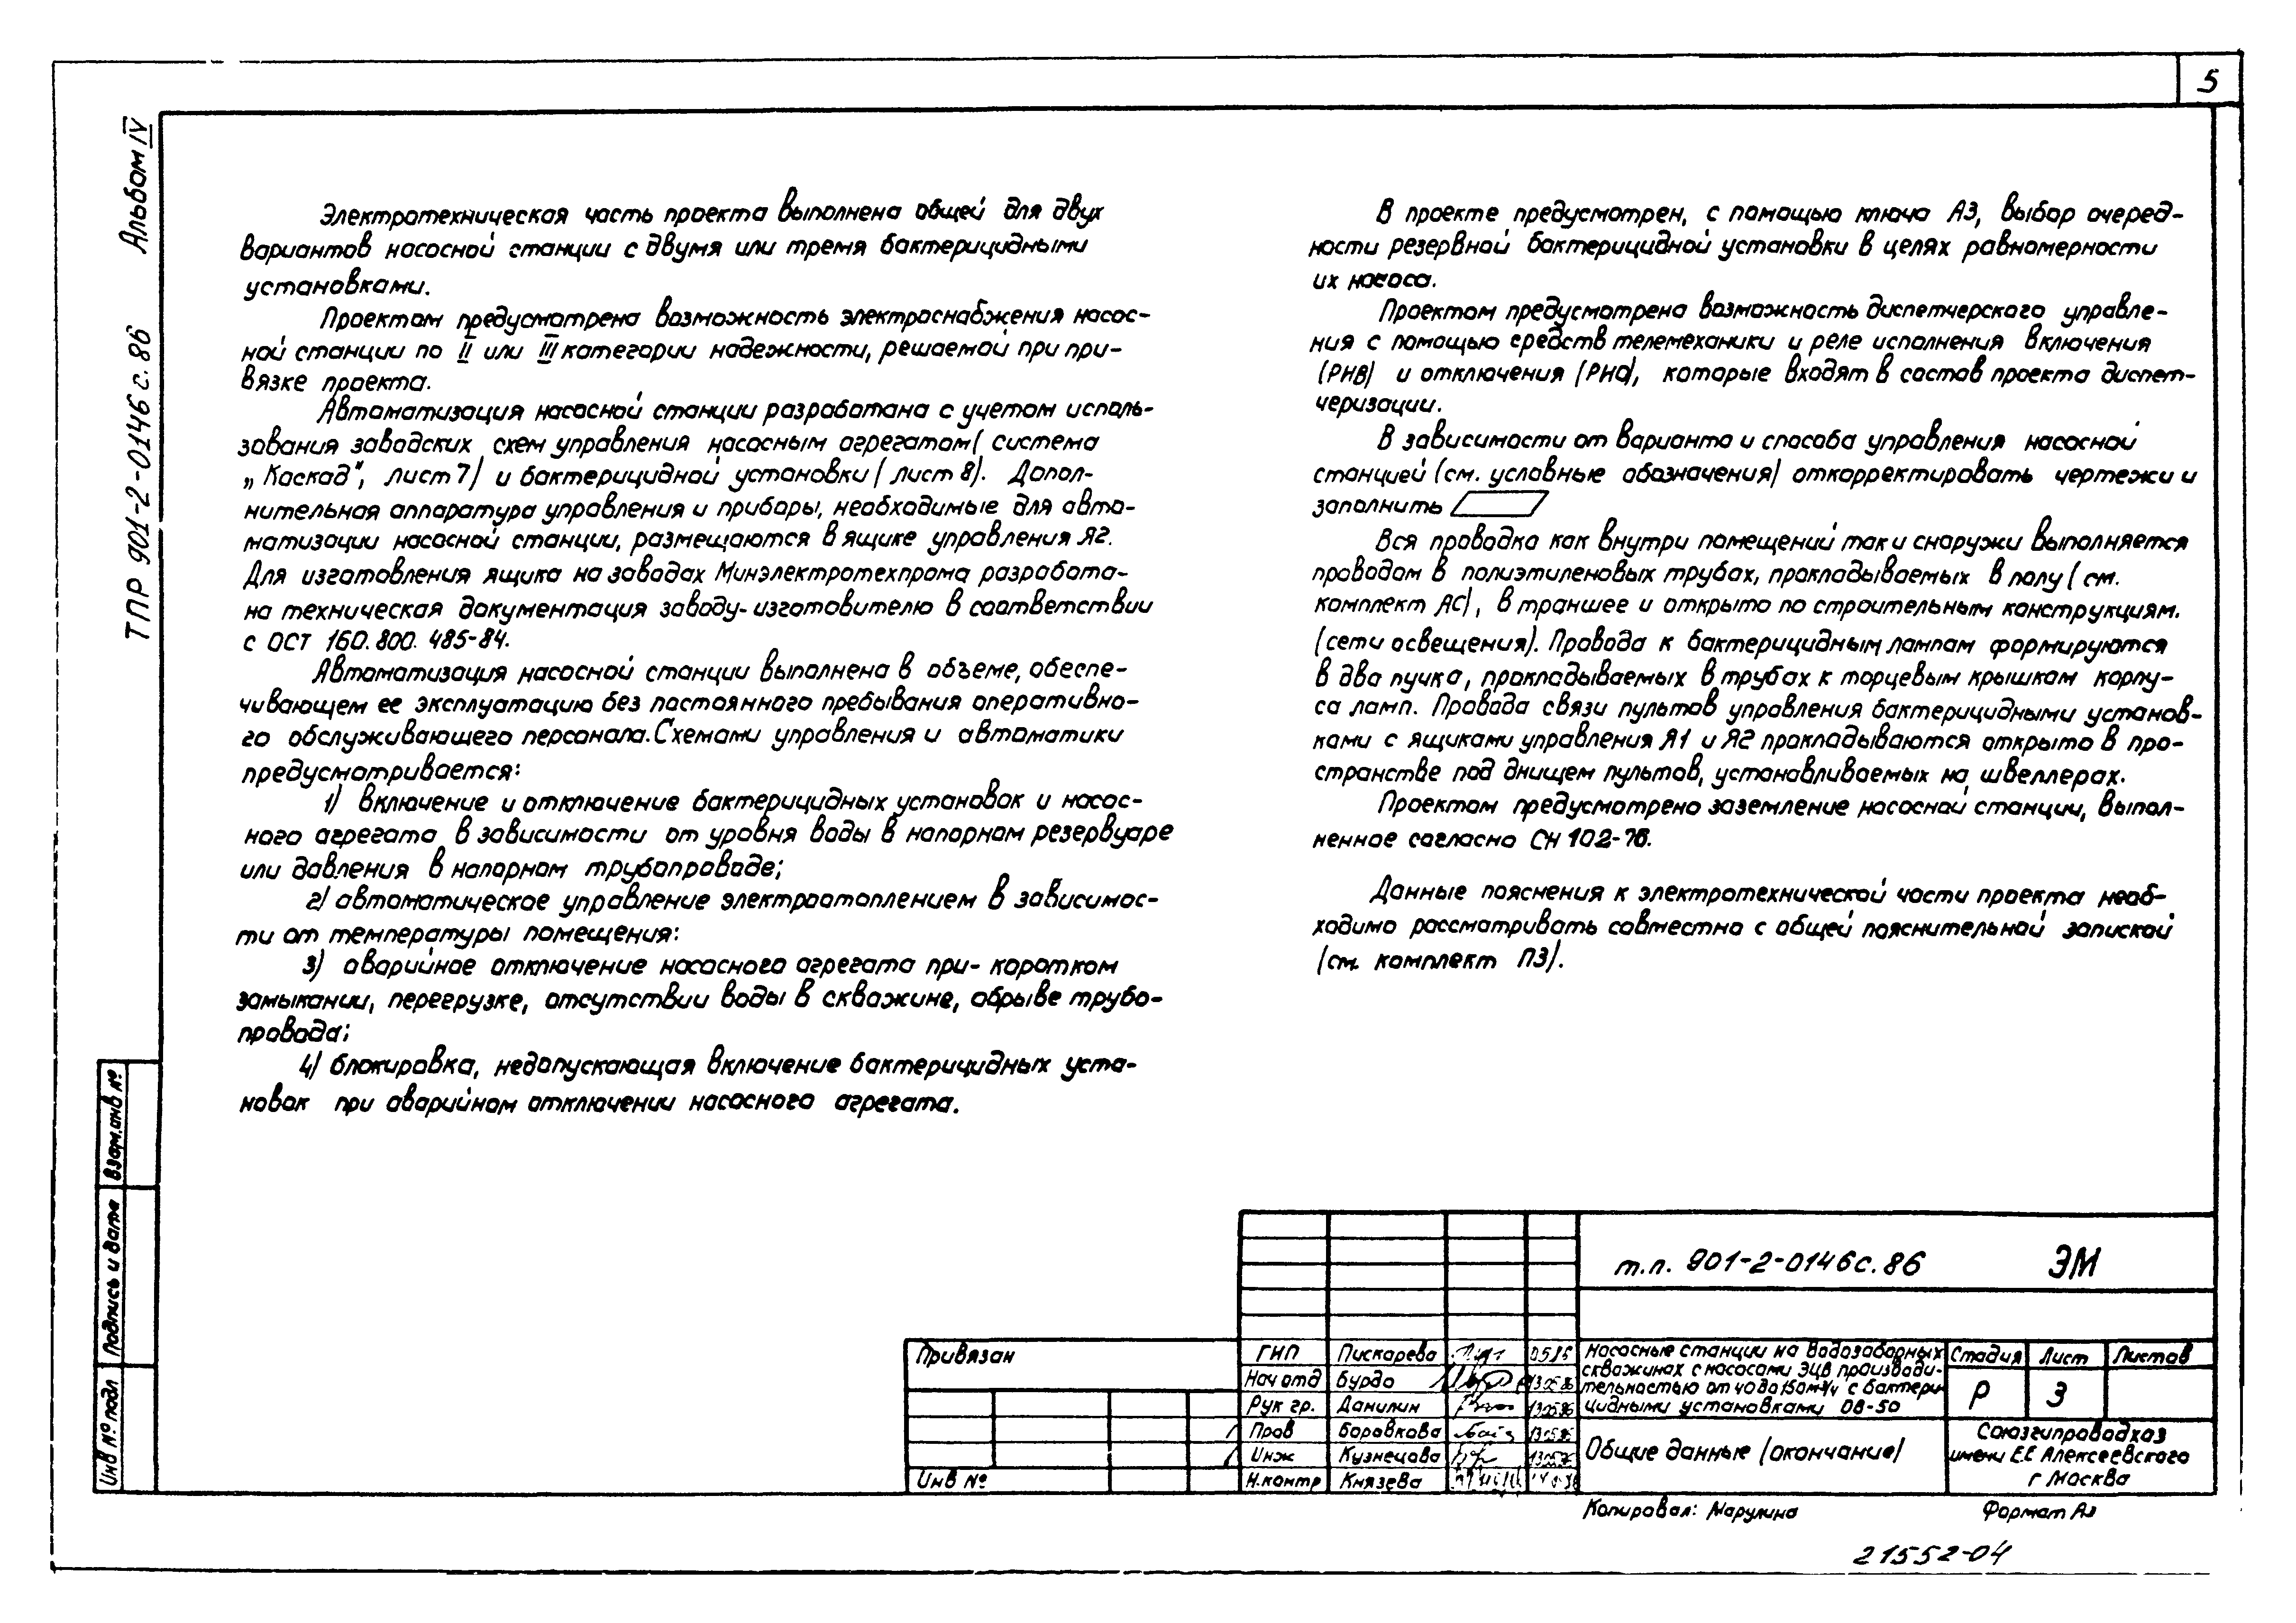 5
Альбом IV
ТПР 901-2-0146с.86
Электротехническая часть проекта выполнена общей для двух
вариантов насосной станции с двумя или тремя бактерицидными
установками.
Проектом предусмотрена возможность электроснабжения насос-
ной станции по II или III категории надежности, решаемой при при-
вязке проекта.
Автоматизация насосной станции разработана с учетом исполь-
зования заводских схем управления насосным агрегатом (система
„Каскад", лист 7) и бактерицидной установки (лист 8). Допол-
нительная аппаратура управления и приборы, необходимые для авто-
матизации насосной станции, размещаются в ящике управления Я2.
Для изготовления ящика на заводах Минэлектротехпрома разработа-
на техническая документация заводу-изготовителю в соответствии
с ОСТ 160.800.485-84.
Автоматизация насосной станции выполнена в объеме, обеспе-
чивающем ее эксплуатацию без постоянного пребывания оперативно-
го обслуживающего персонала. Схемами управления и автоматики
предусматривается:
1) включение и отключение бактерицидных установок и насос-
ного агрегата в зависимости от уровня воды в напорном резервуаре
или давления в напорном трубопроводе;
2) автоматическое управление электроотоплением в зависимос-
ти от температуры помещения:
3) аварийное отключение насосного агрегата при- коротком
замыкании, перегрузке, отсутствии воды в скважине, обрыве трубо-
провода;
4) блокировка, недопускающая включение бактерицидных уста-
новок при аварийном отключении насосного агрегата.
В проекте предусмотрен, с помощью ключа А3, выбор очеред-
ности резервной бактерицидной установки в целях равномерности
их насоса.
Проектом предусмотрена возможность диспетчерского управле-
ния с помощью средств телемеханики и реле исполнения включения
(РНВ) и отключения (РНО), которые входят в состав проекта диспет-
черизации.
В зависимости от варианта и способа управления насосной
станцией (см. условные обозначения) откорректировать чертежи и
заполнить
Вся проводка как внутри помещений так и снаружи выполняется
проводом в полиэтиленовых трубах, прокладываемых в полу (см.
комплект АС), в траншее и открыто по строительным конструкциям.
(сети освещения). Провода к бактерицидным лампам формируются
в два пучка, прокладываемых в трубах к торцевым крышкам корпу-
са ламп. Провода связи пультов управления бактерицидными установ-
ками с ящиками управления Я1 и Я2 прокладываются открыто в про-
странстве под днищем пультов, устанавливаемых на швеллерах.
Проектом предусмотрено заземление насосной станции, выпол-
ненное согласно СН 102-76.
Данные пояснения к электротехнической части проекта необ-
ходимо рассматривать совместно с общей пояснительной запиской
(см. комплект ПЗ).
Взам.инв №
Подпись и дата
Инв № подл
т.п. 901-2-0146с.86 ЭМ
Привязан
Инв №
ГИП Пискарева
Нач отд Бурдо
Рук гр. Данилин
Пров Боровкова
Инж Кузнецова
Н.контр Князева
Насосные станции на водозаборных
скважинах с насосами ЭЦВ производи-
тельностью от 40 до 150м³/ч с бактери-
цидными установками ОВ-50
Стадия Лист Листов
Р 3
Общие данные (окончание)
Союзгипроводхоз
имени Е.Е Алексеевского
г Москва
Копировал: Марулина Формат А3
21552-04